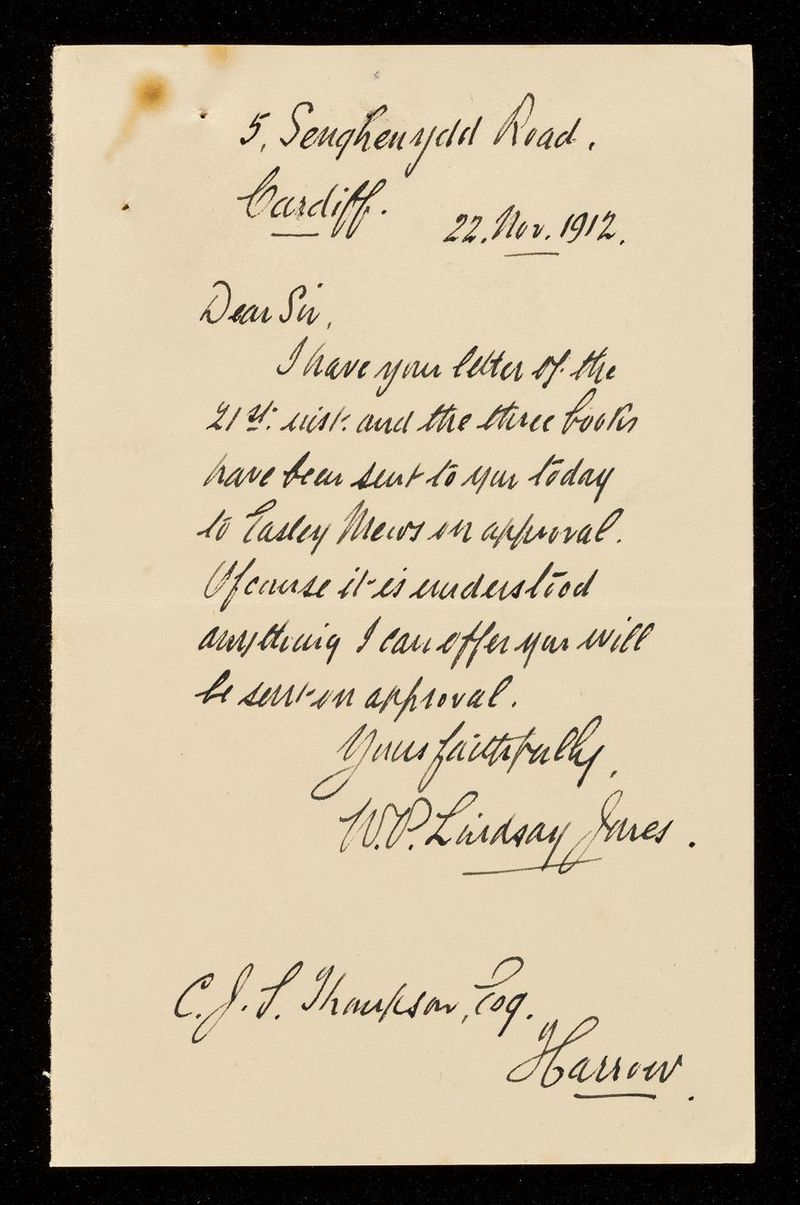 5, Senghenydd Road.
Cardiff.
22. Nov. 1912.
Dear Sir,
I have your letter of the
21st. inst. and the three books
have been sent to you today
to Easley Mews on approval.
Of course it is understood
anything I can offer you will
be sent on approval.
Yours faithfully,
W. P. Lindsay Jones.
C. J. S. Thompson, Esq.
Harrow.